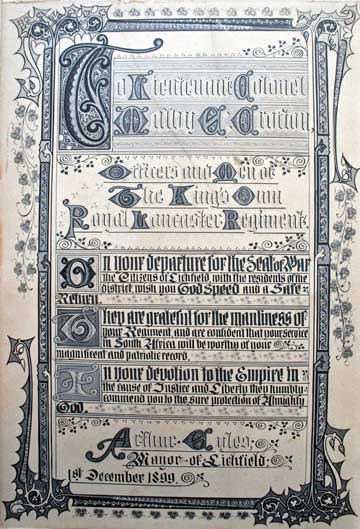 To Lieutenant Colonel
Malby E. Crofton,
Officers and Men of
The King's Own
Royal Lancaster Regiment.
On your departure for the Seat of War
the Citizens of Lichfield with the residents of the
district, wish you God Speed and a Safe
Return.
They are grateful for the manliness of
your Regiment, and are confident that your service
in South Africa will be worthy of your
magnificent and patriotic record.
In your devotion to the Empire in
the cause of Justice and Liberty they humbly
commend you to the sure protection of Almighty
God.
Arthur C.
Manor of Lichfield.
1st December 1899.